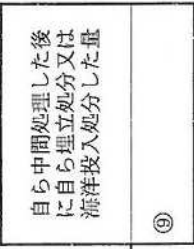 自ら中間処理した後
に自ら埋立処分又は
海洋投入処分した量
⑨